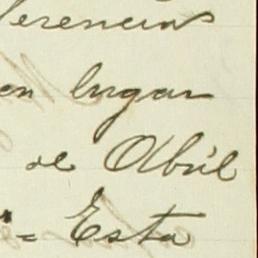 ferencias
en lugar
de Abril
= Esta